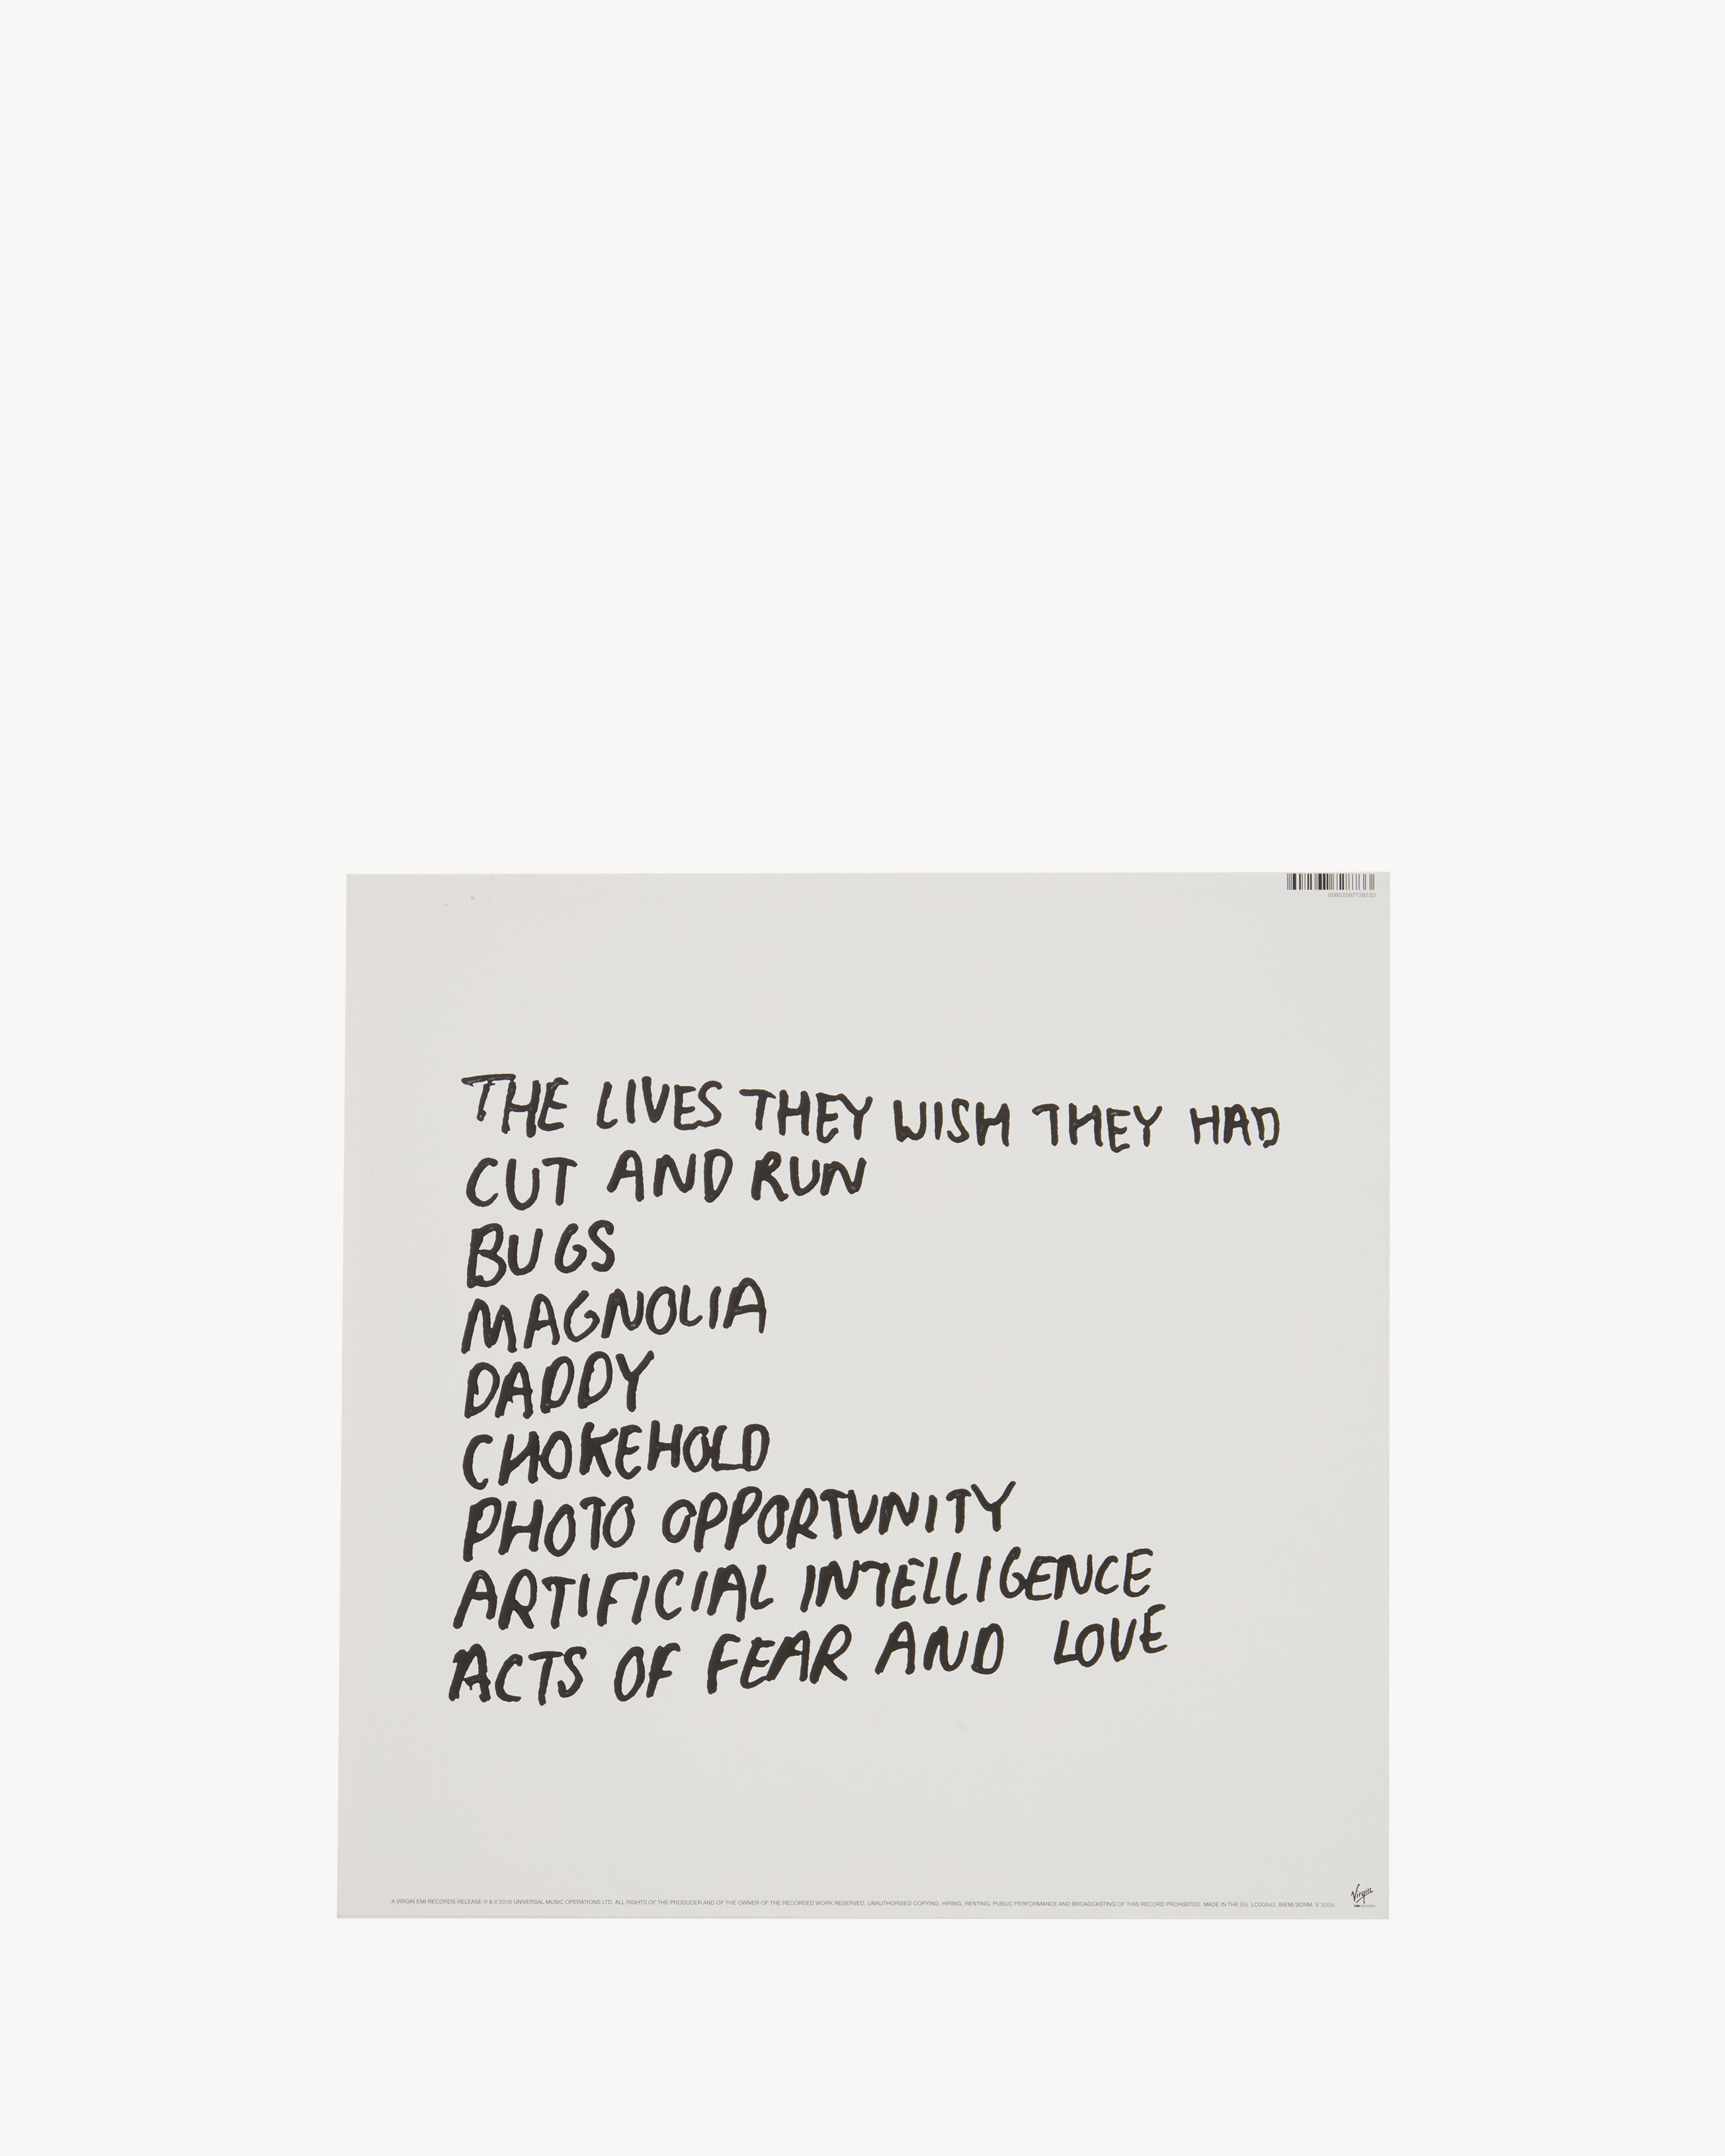 00602567728733
THE LIVES THEY WISH THEY HAD
CUT AND RUN
BUGS
MAGNOLIA
DADDY
CHOKEHOLD
PHOTO OPPORTUNITY
ARTIFICIAL INTELLIGENCE
ACTS OF FEAR AND LOVE
Virgin
A VIRGIN EMI RECORDS RELEASE ℗ & © 2018 UNIVERSAL MUSIC OPERATIONS LTD. ALL RIGHTS OF THE PRODUCER AND OF THE OWNER OF THE RECORDED WORK RESERVED. UNAUTHORISED COPYING, HIRING, RENTING, PUBLIC PERFORMANCE AND BROADCASTING OF THIS RECORD PROHIBITED. MADE IN THE EU. LC00542. BIEM/SDRM. V 3209